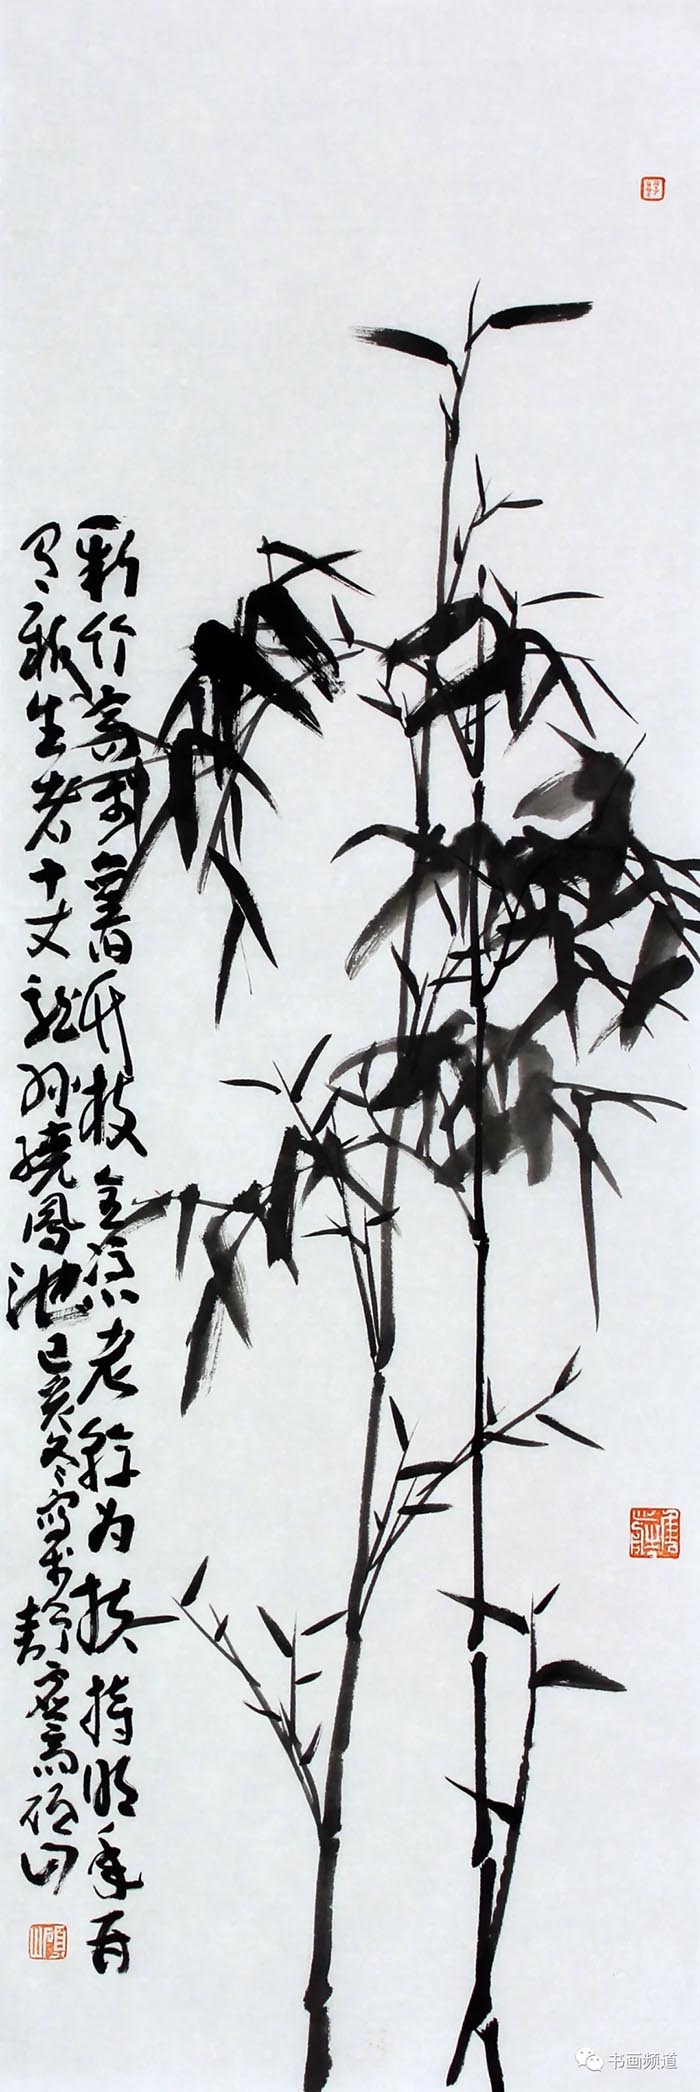 新竹高于旧竹枝全凭老干为扶持明年再
有新生者十丈龙孙绕凤池己亥冬写于
书画频道